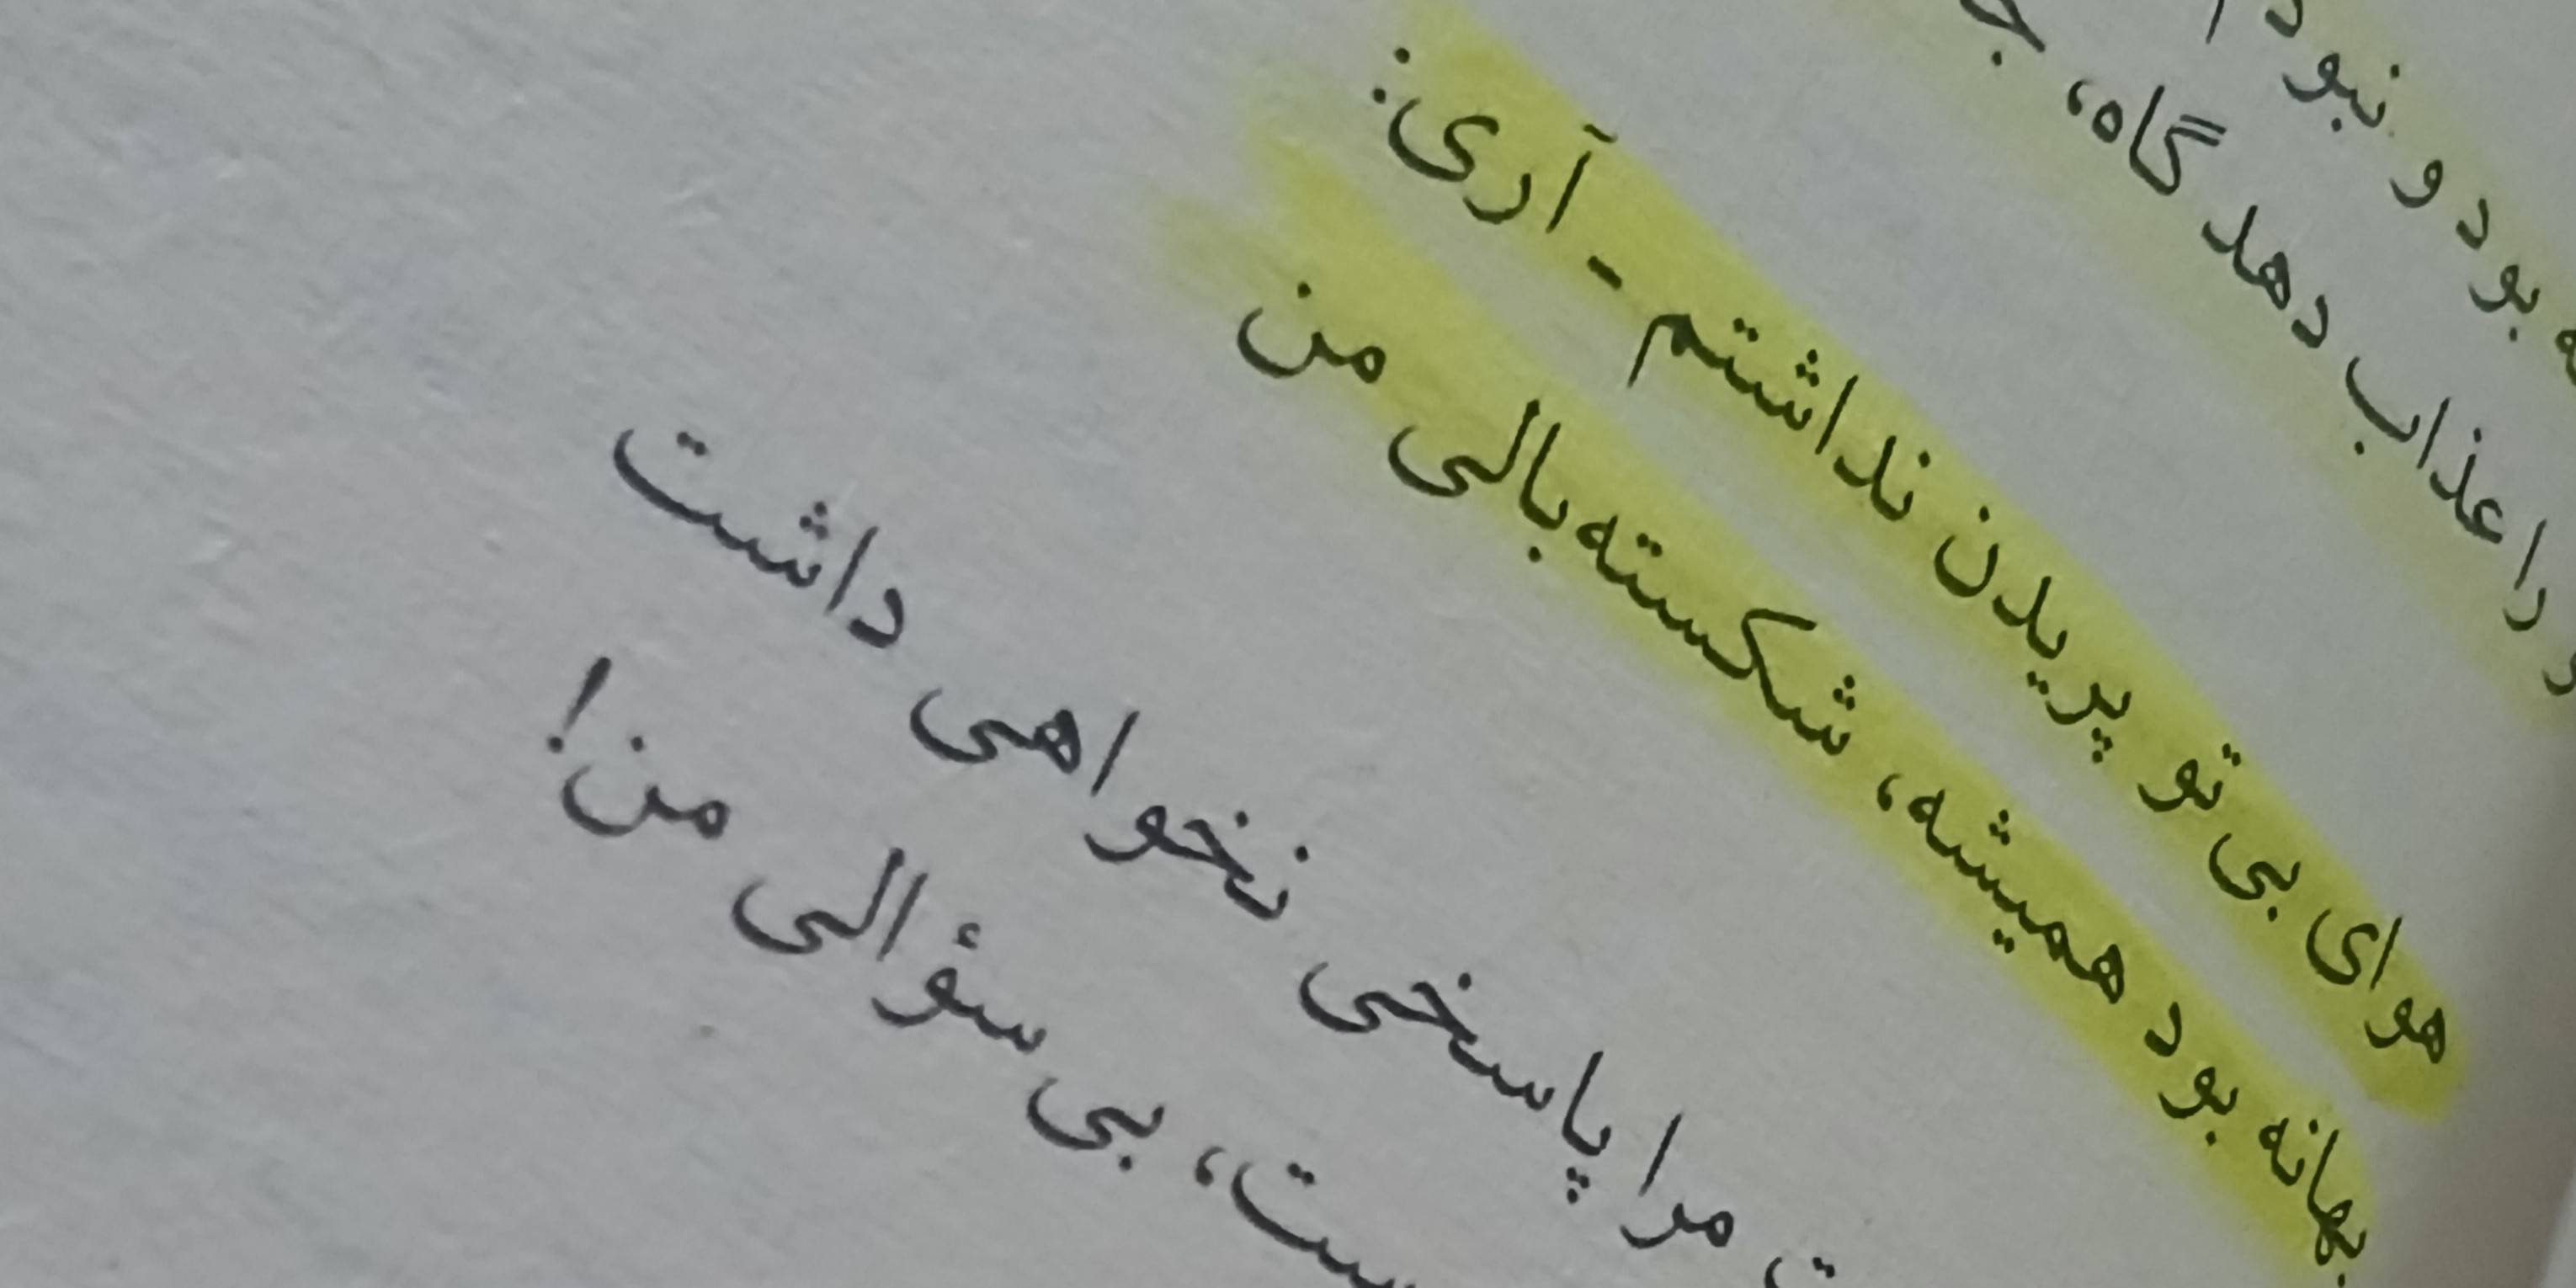 بود و نبود
را عذاب دهد گاه،
هوای بی تو پریدن نداشتم - آری:
بهانه بود همیشه، شکسته‌بالی من
مرا پاسخی نخواهی داشت
بی سؤالی من!